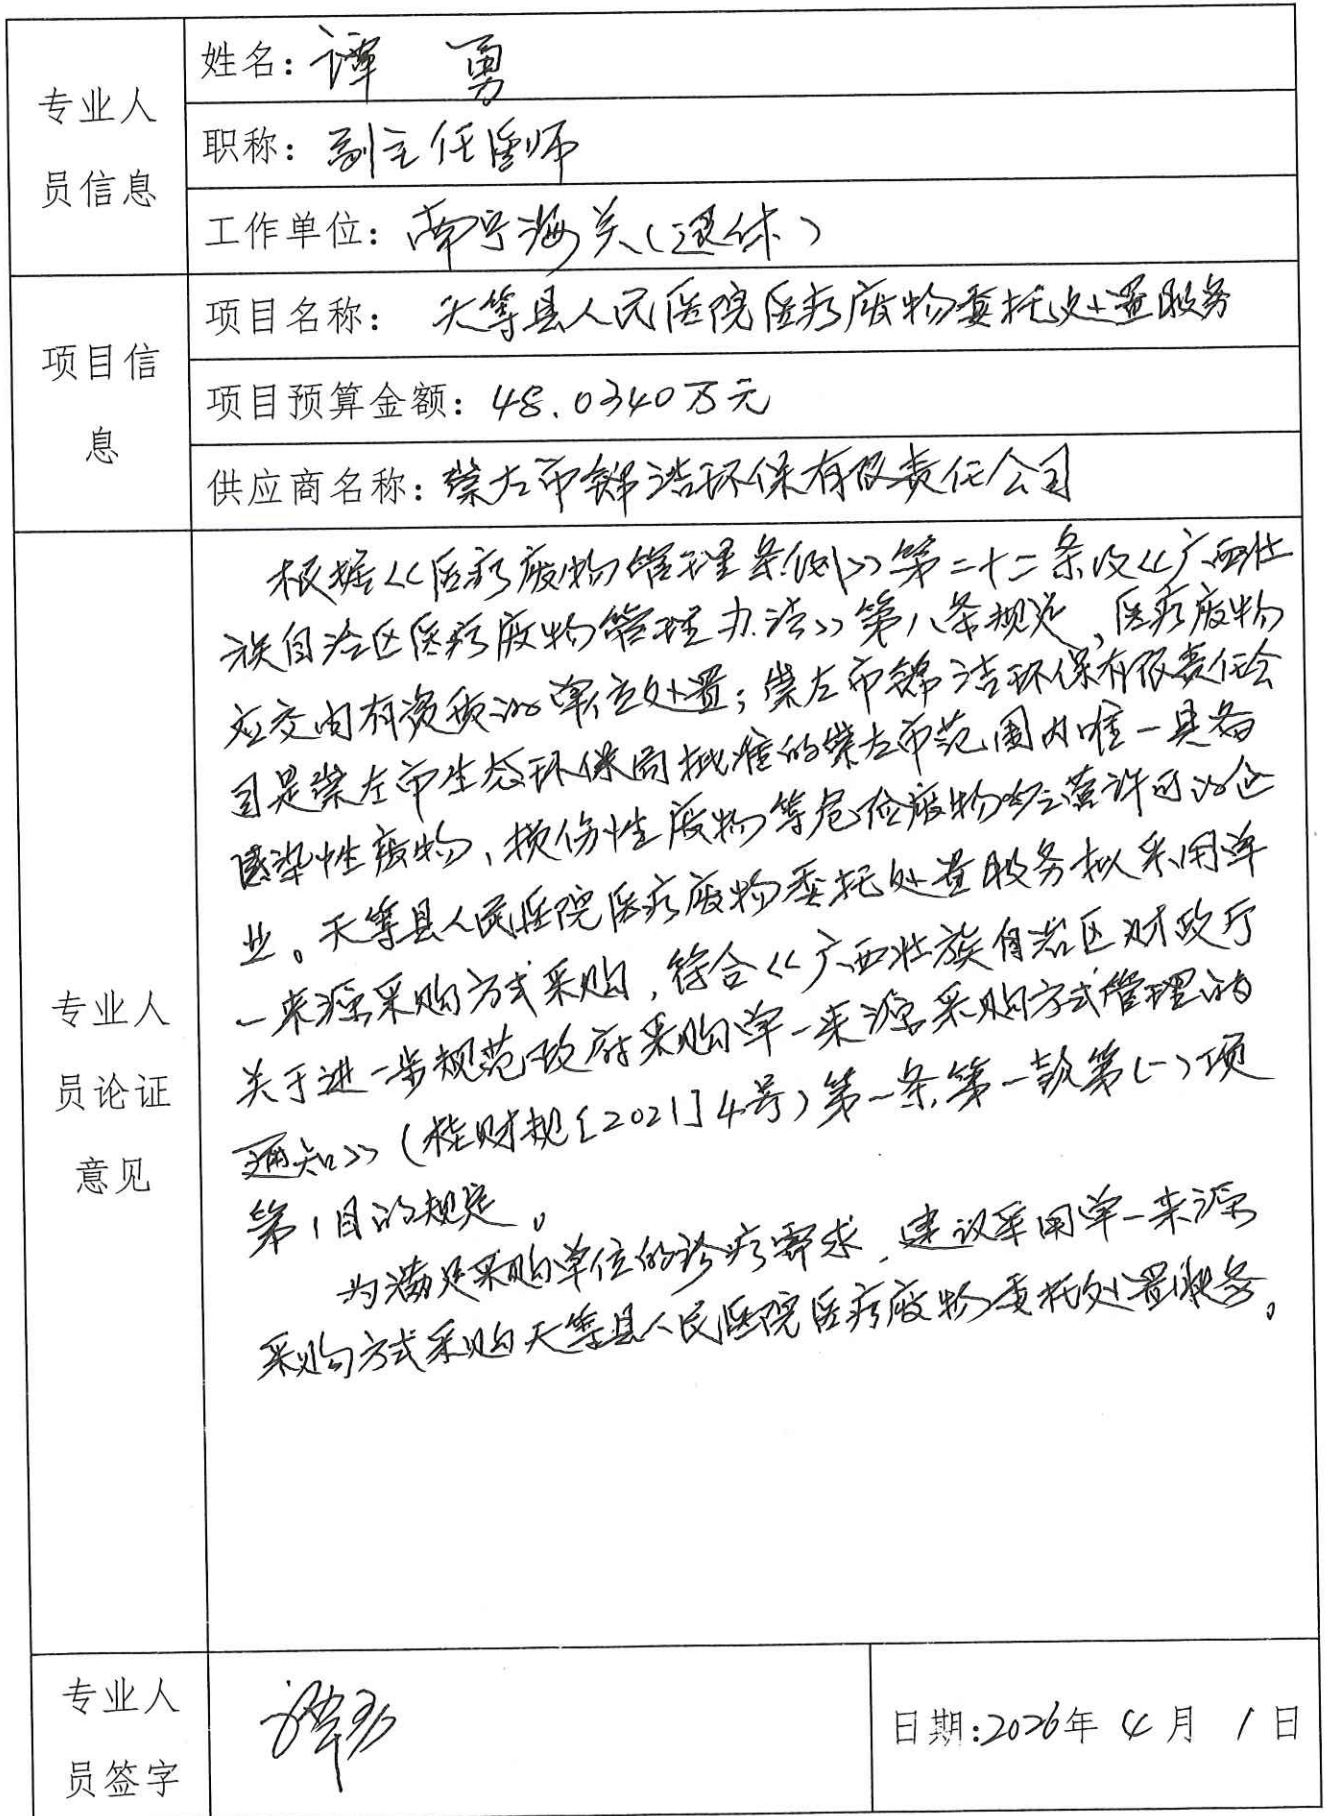 专业人
员信息
姓名：谭 勇
职称：副主任医师
工作单位：南宁海关（退休）
项目信
息
项目名称：天等县人民医院医疗废物委托处置服务
项目预算金额：48.0340万元
供应商名称：崇左市锦洁环保有限责任公司
专业人
员论证
意见
根据《医疗废物管理条例》第二十二条及《广西壮
族自治区医疗废物管理办法》第八条规定，医疗废物
应交由有资质的单位处置；崇左市锦洁环保有限责任公
司是崇左市生态环保局批准的崇左市范围内唯一具备
感染性废物、损伤性废物等危险废物经营许可的企
业。天等县人民医院医疗废物委托处置服务拟采用单
一来源采购方式采购，符合《广西壮族自治区财政厅
关于进一步规范政府采购单一来源采购方式管理的
通知》（桂财规〔2021〕4号）第一条第一款第（一）项
第1目的规定。
为满足采购单位的诊疗需求，建议采用单一来源
采购方式采购天等县人民医院医疗废物委托处置服务。
专业人
员签字
谭勇
日期：2026年 4 月 1 日